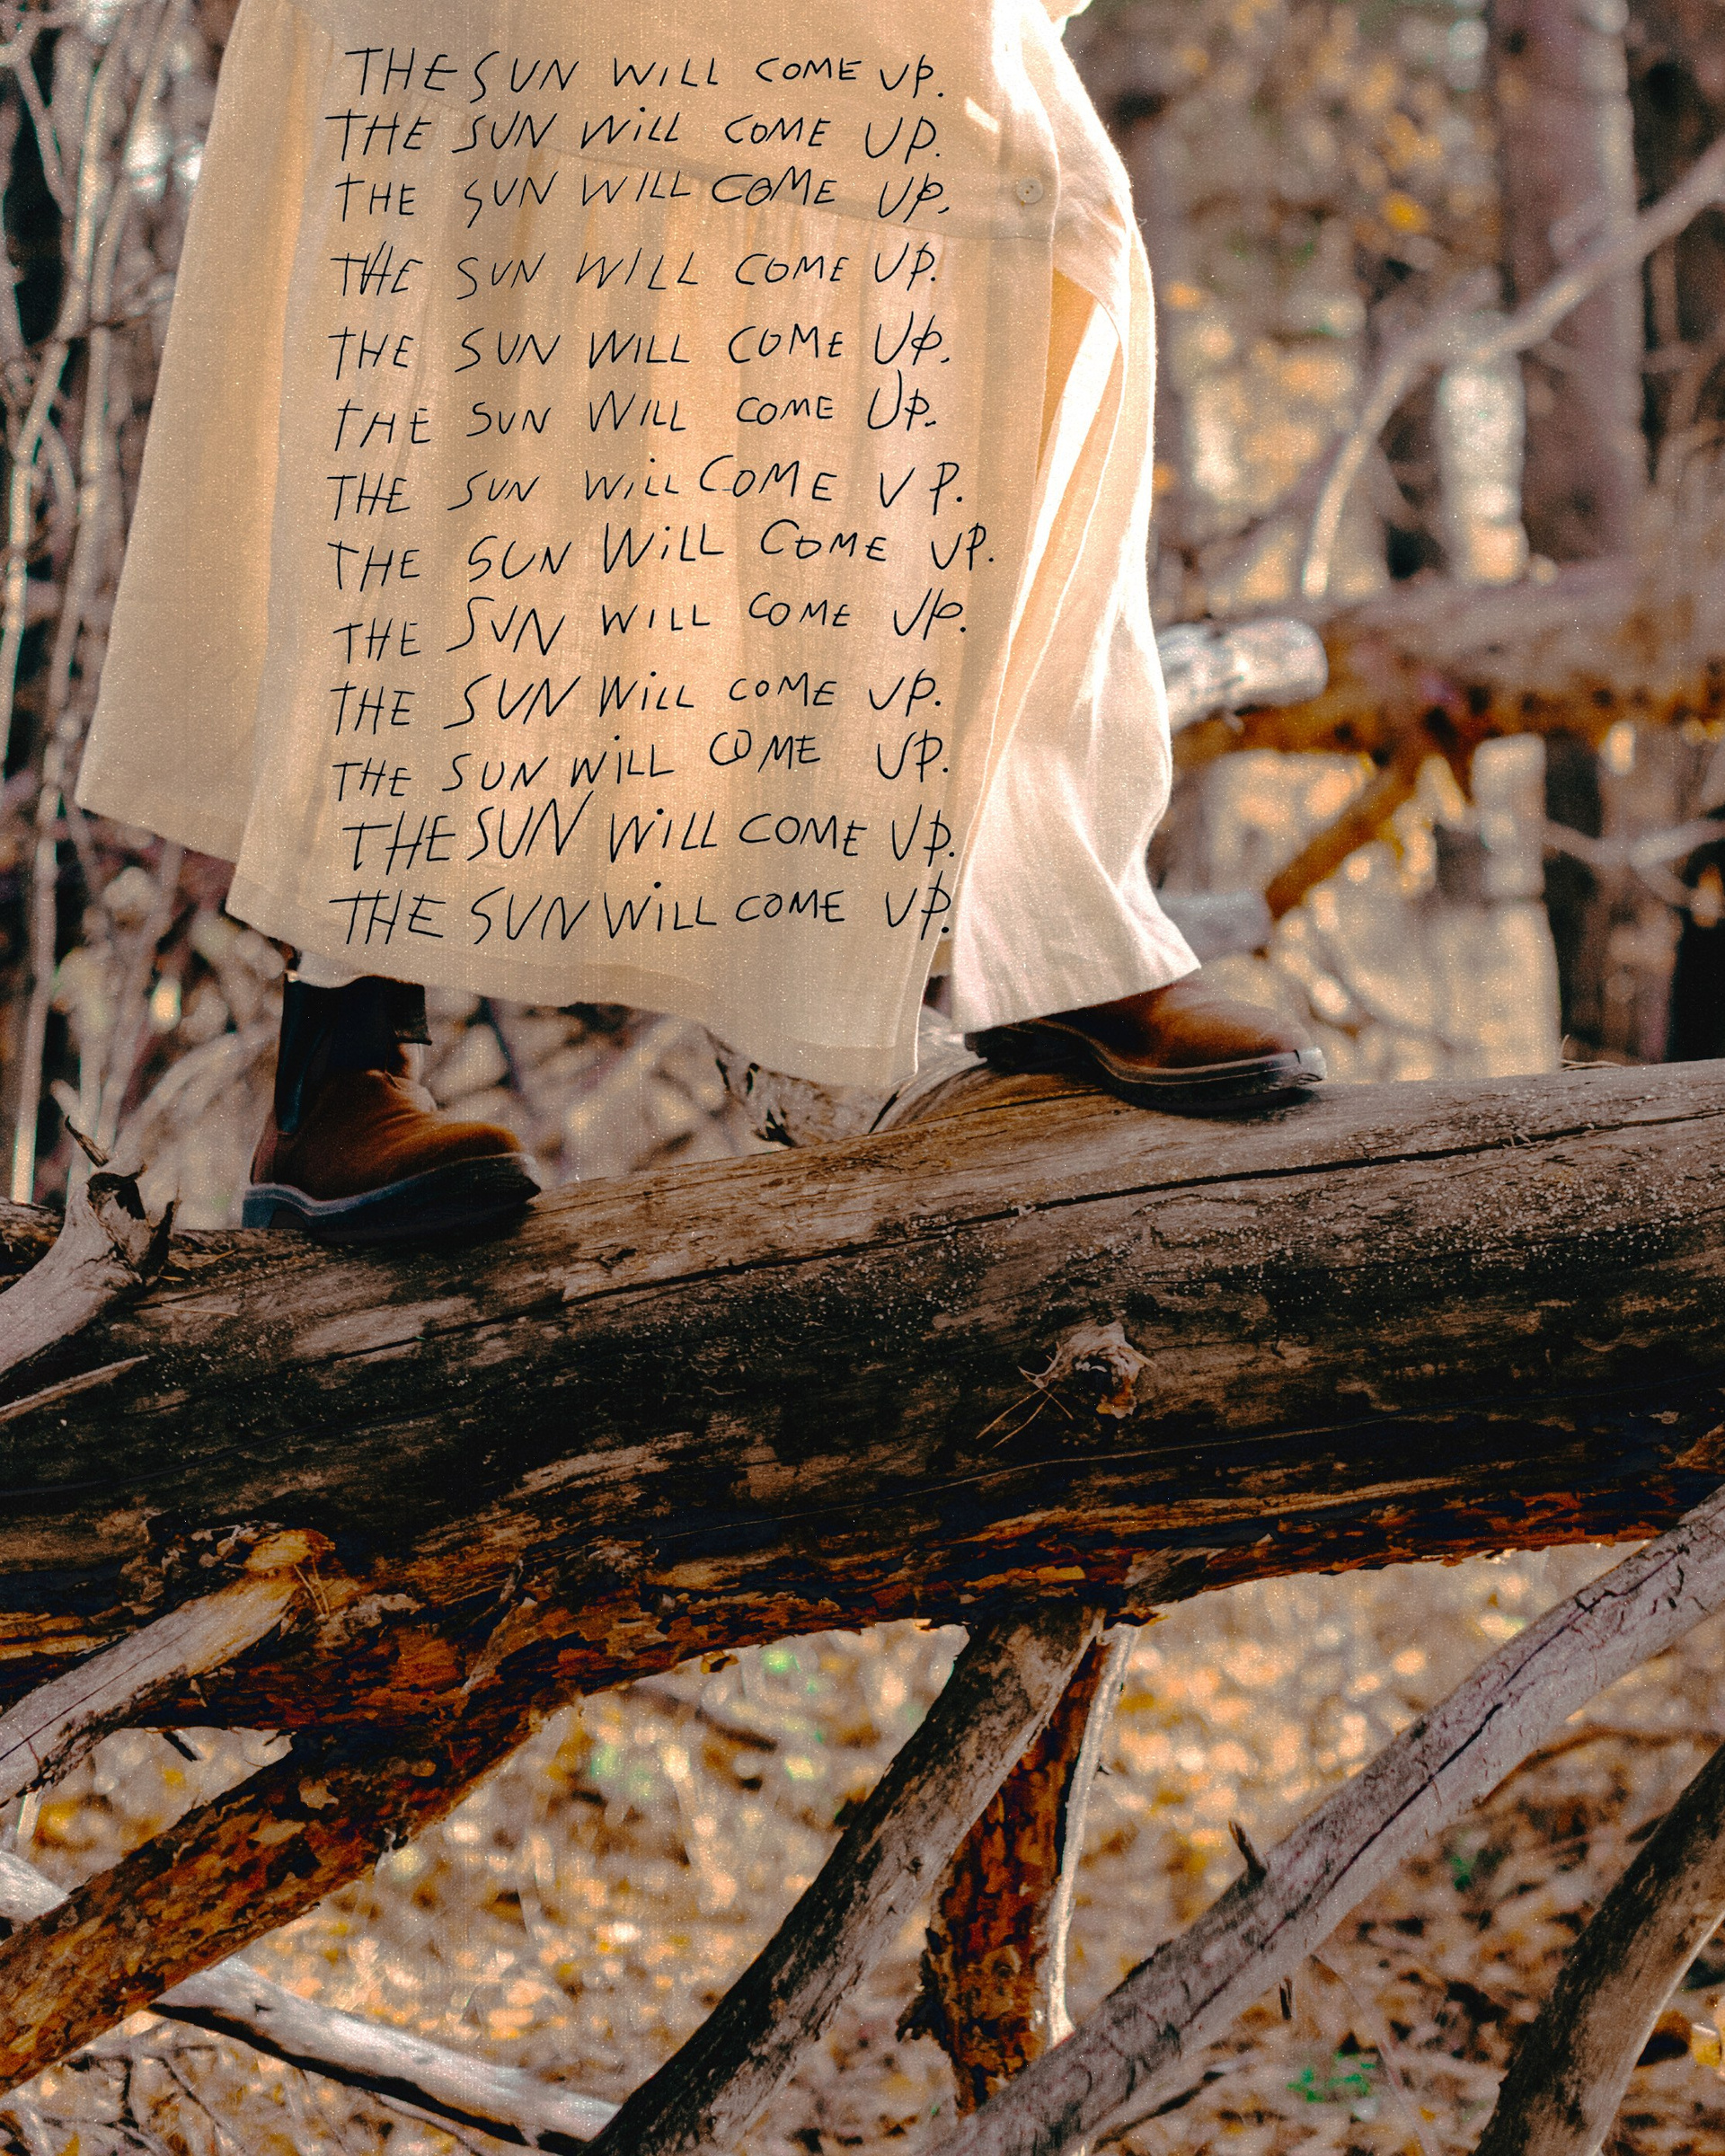 THE SUN WILL COME UP.
THE SUN WiLL COME UP.
THE SUN WILL COME UP.
THE SUN WILL COME UP.
THE SUN WILL COME UP.
THE SUN WILL COME UP.
THE SUN WiLL COME UP.
THE SUN WiLL COME UP.
THE SUN WILL COME UP.
THE SUN WiLL COME UP.
THE SUN WiLL COME UP.
THE SUN WiLL COME UP.
THE SUN WiLL COME UP.